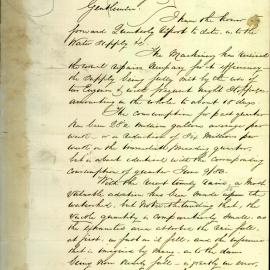 Gentlemen,
I have the honor to
forward Quarterly Report to date, as to the
Water Supply &c.
The Machinery has received
the usual repairs necessary for its efficiency
the supply being fully met by the use of
one Engine & with frequent night stoppages
amounting in the whole to about 18 days.
The consumption for past quarter
has been 282 million gallons average per
week, or a reduction of Six Millions per
week on the immediately preceding quarter,
but is about identical with the corresponding
consumption of quarter June
With the recent timely rains, a most
valuable addition has been made upon the
watershed, but notwithstanding that, the
whole quantity is comparatively small, as
the exhausted area absorbed the rain fall
at first, as fast as it fell, and the
is by many, as to the dam
being now nearly full is greatly in error,